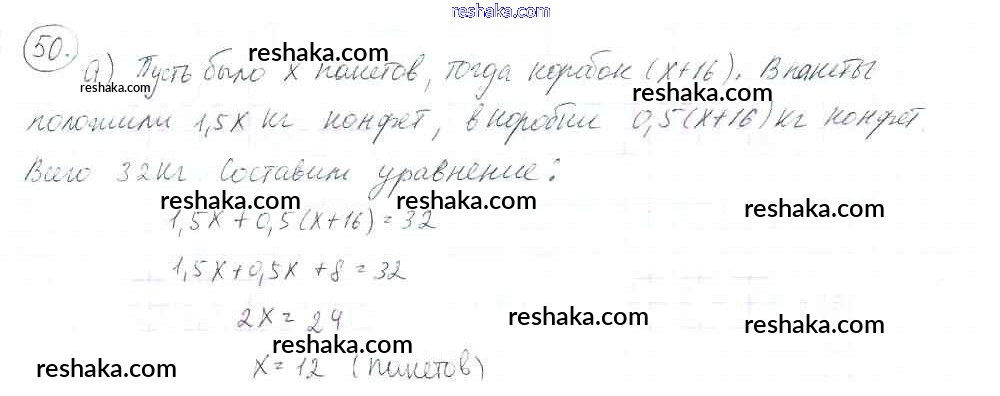 reshaka.com
50.
reshaka.com
а) Пусть было x пакетов, тогда коробок (x+16). В пакеты
reshaka.com
reshaka.com
положили 1,5x кг конфет, в коробки 0,5(x+16) кг конфет.
Всего 32 кг. Составим уравнение:
reshaka.com
reshaka.com
reshaka.com
1,5x + 0,5(x+16) = 32
1,5x + 0,5x + 8 = 32
2x = 24
reshaka.com
reshaka.com
reshaka.com
reshaka.com
x = 12 (пакетов)